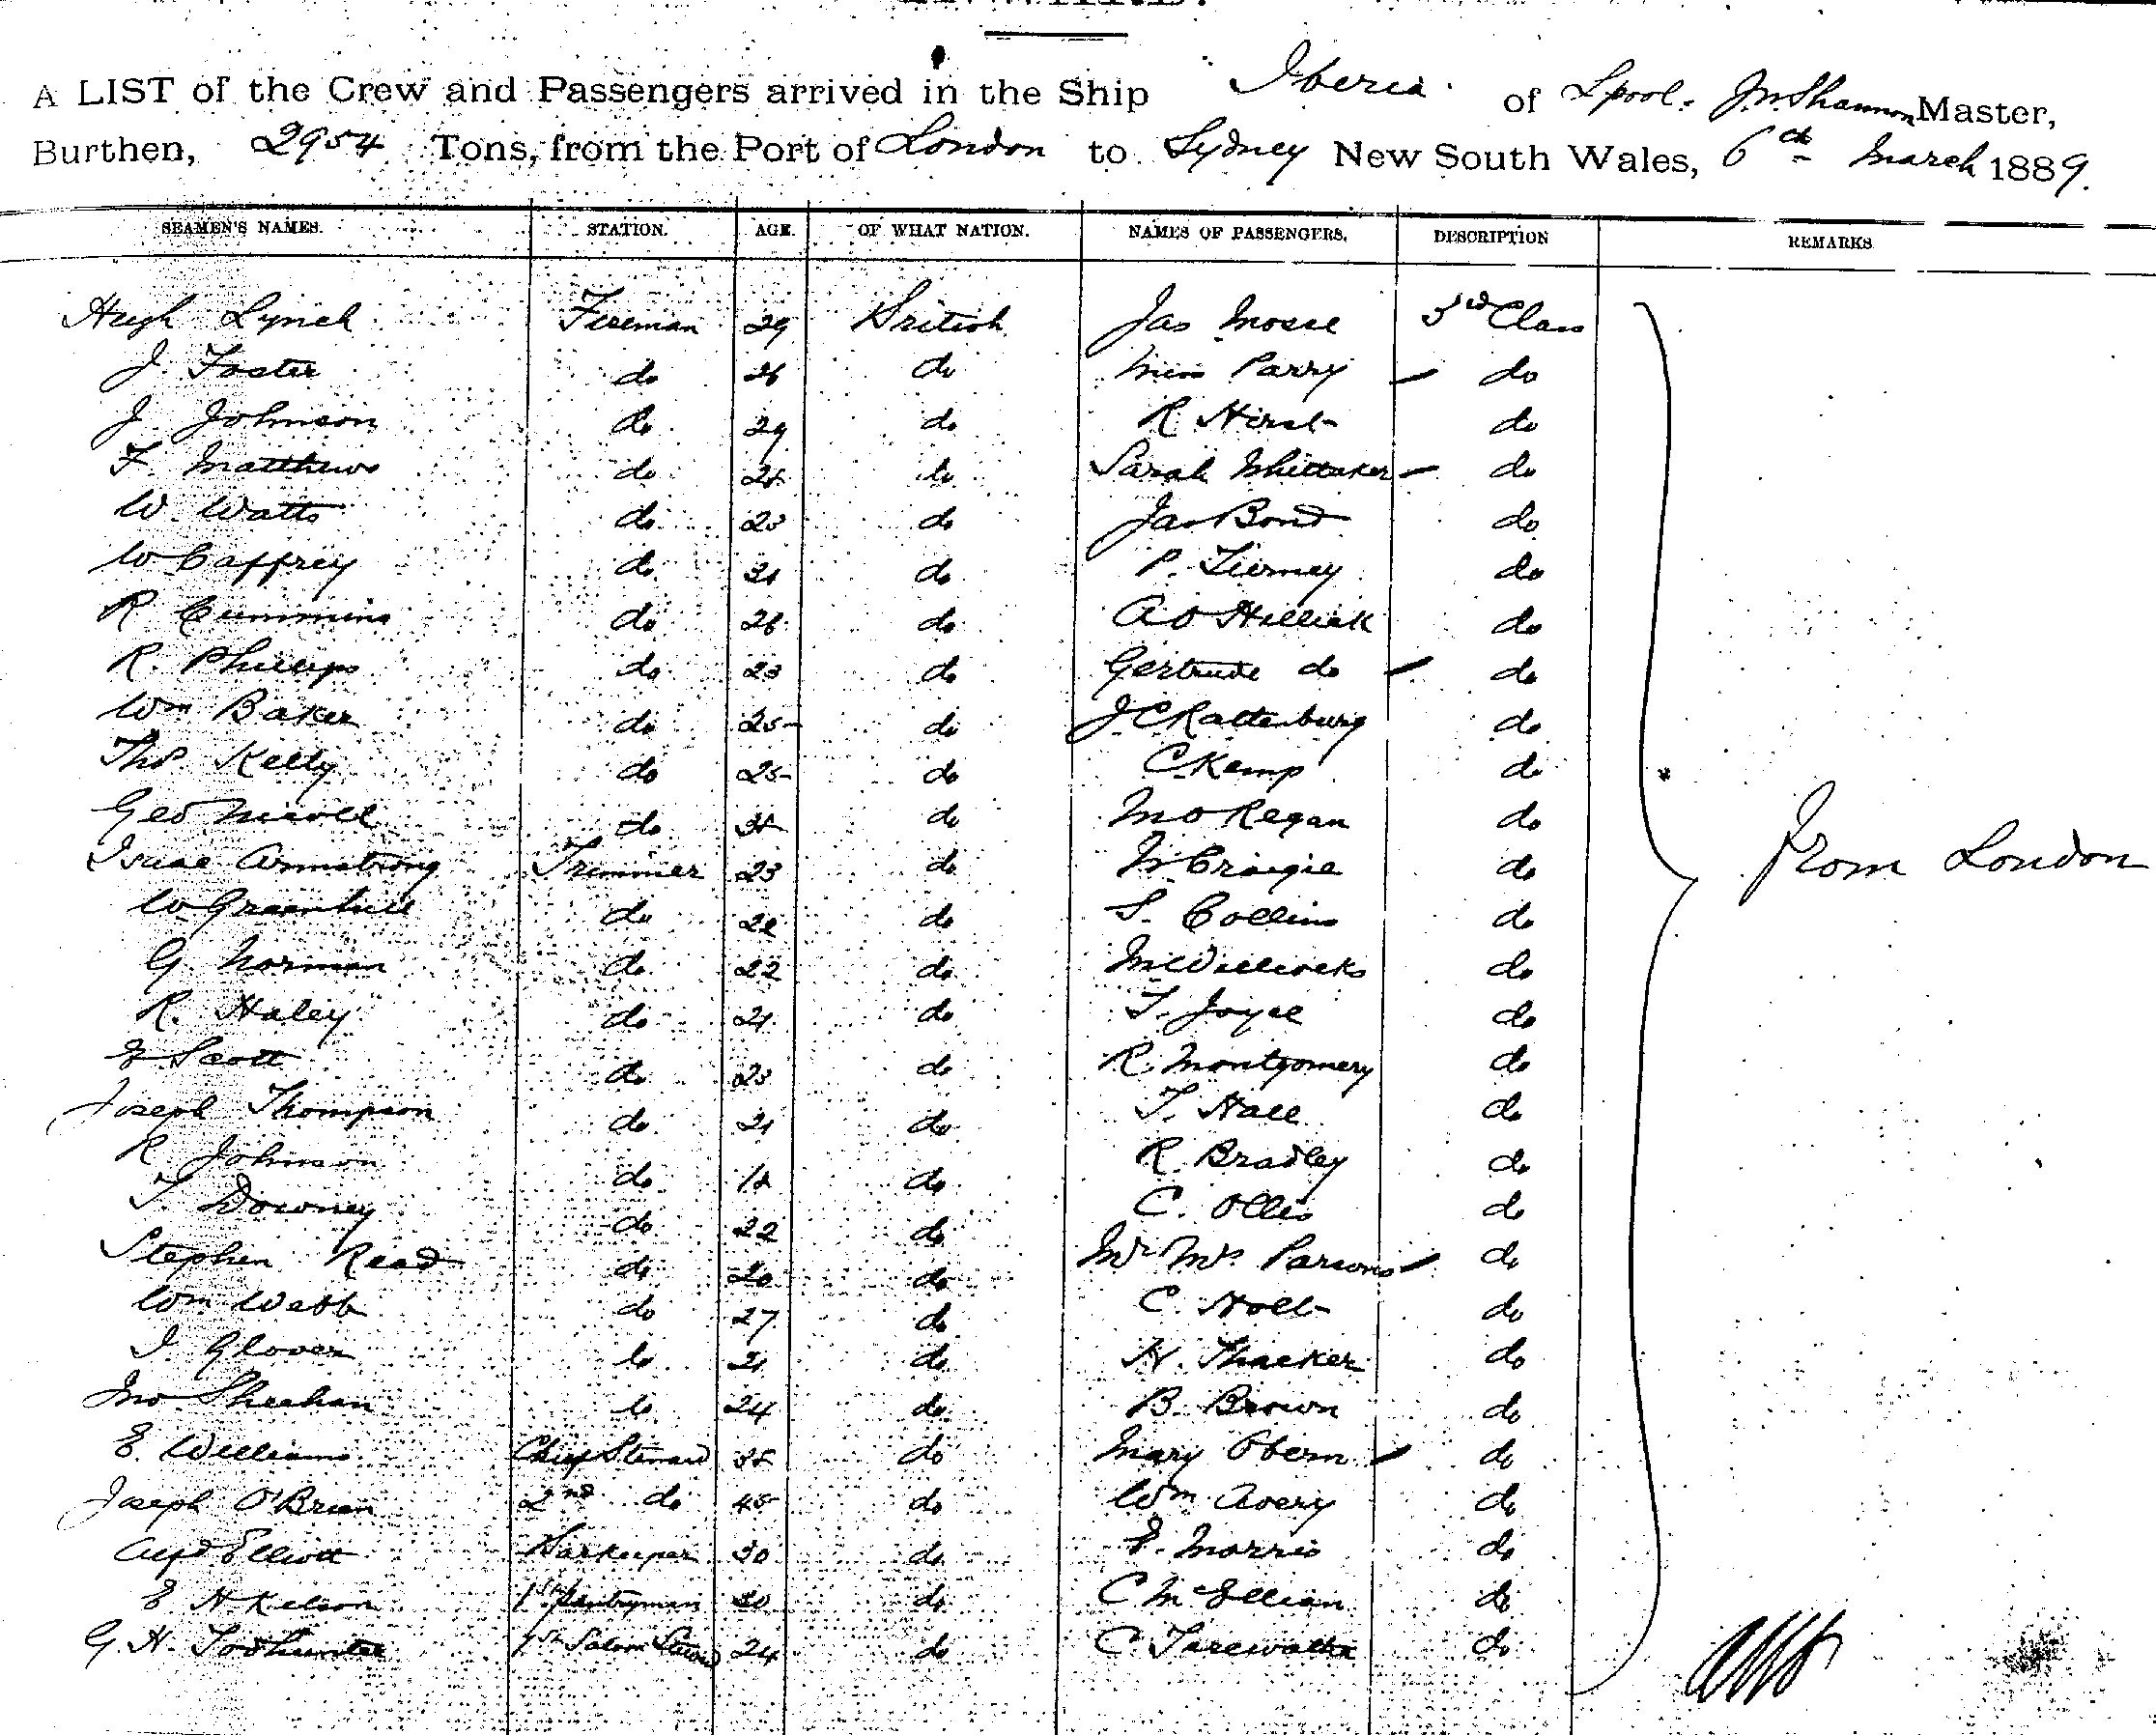 A LIST of the Crew and Passengers arrived in the Ship Iberia of Lpool. Shannon Master,
Burthen, 2954 Tons, from the Port of London to Sydney New South Wales, 6th March 1889.
SEAMEN'S NAMES. STATION. AGE. OF WHAT NATION. NAMES OF PASSENGERS. DESCRIPTION REMARKS
Hugh Lynch Fireman 29 British Jas 3rd Class
J. Foster do 26 do Miss Parry do
J Johnson do 29 do R Hirst do
F. Matthews do do Sarah Whittaker do
W. Watts do 23 do Jas Bond do
W Caffrey do 31 do P. Tierney do
R Cummins do 26 do A O do
R. Phillips do 23 do Gertrude do do
Wm Baker do 25 do J C Rattenbury do
Thos Kelly do 25 do C Kemp do
Geo do do M O Regan do
From London
Isaac Armstrong Trimmer 23 do Craigie do
W Greenhill do 22 do S. Collins do
G. Norman do 22 do Willcocks do
R. Haley do 21 do T. Joyce do
Scott do 23 do R. Montgomery do
Joseph Thompson do 21 do T. Hall do
R Johnson do do R. Bradley do
T. Downey do 22 do C. Ollis do
Stephen Read do 20 do Mr Mrs Parsons do
Wm Webb do 27 do C. Holt do
J Glover do 21 do H. Thacker do
Jno Sheehan do 24 do B. Brown do
E. Williams Chief Steward do Mary do
Joseph O'Brien 2nd do 45 do Wm Avery do
Alfd Elliott Barkeeper 30 do E. Morris do
E H Kelson 1st Pantryman 30 do C do
G. H. Todhunter 1st Saloon Steward 24 do C do